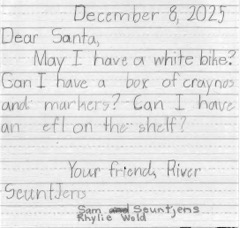 December 8, 2025
Dear Santa,
May I have a white bike?
Can I have a box of craynos
and markers? Can I have
an efl on the shelf?
Your friend, River
Seuntjens
Sam and Seuntjens
Rhylie Wold